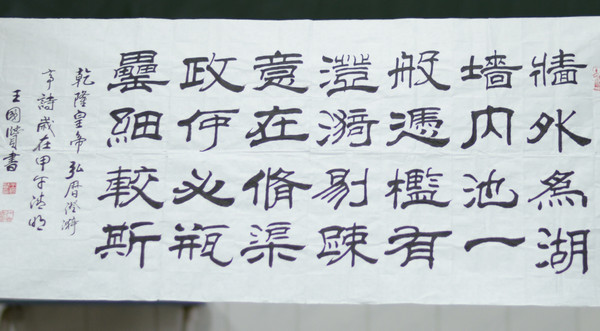 牆外為湖
墻内池一
般憑檻有
澄漪剔踈
意在脩渠
政何必瓶
罍細較斯
乾隆皇帝弘曆澄漪
亭詩歲在甲午清明
王國賢書